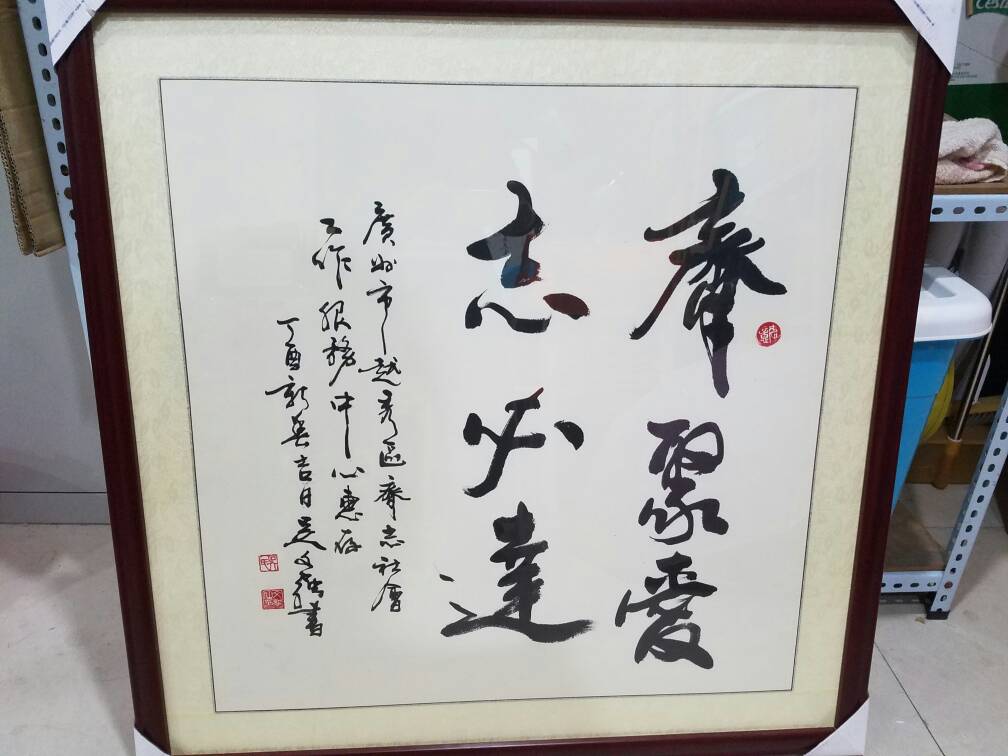 齊聚愛
志必達
廣州市越秀區齊志社會
工作服務中心惠存
丁酉新春吉日吴文強書